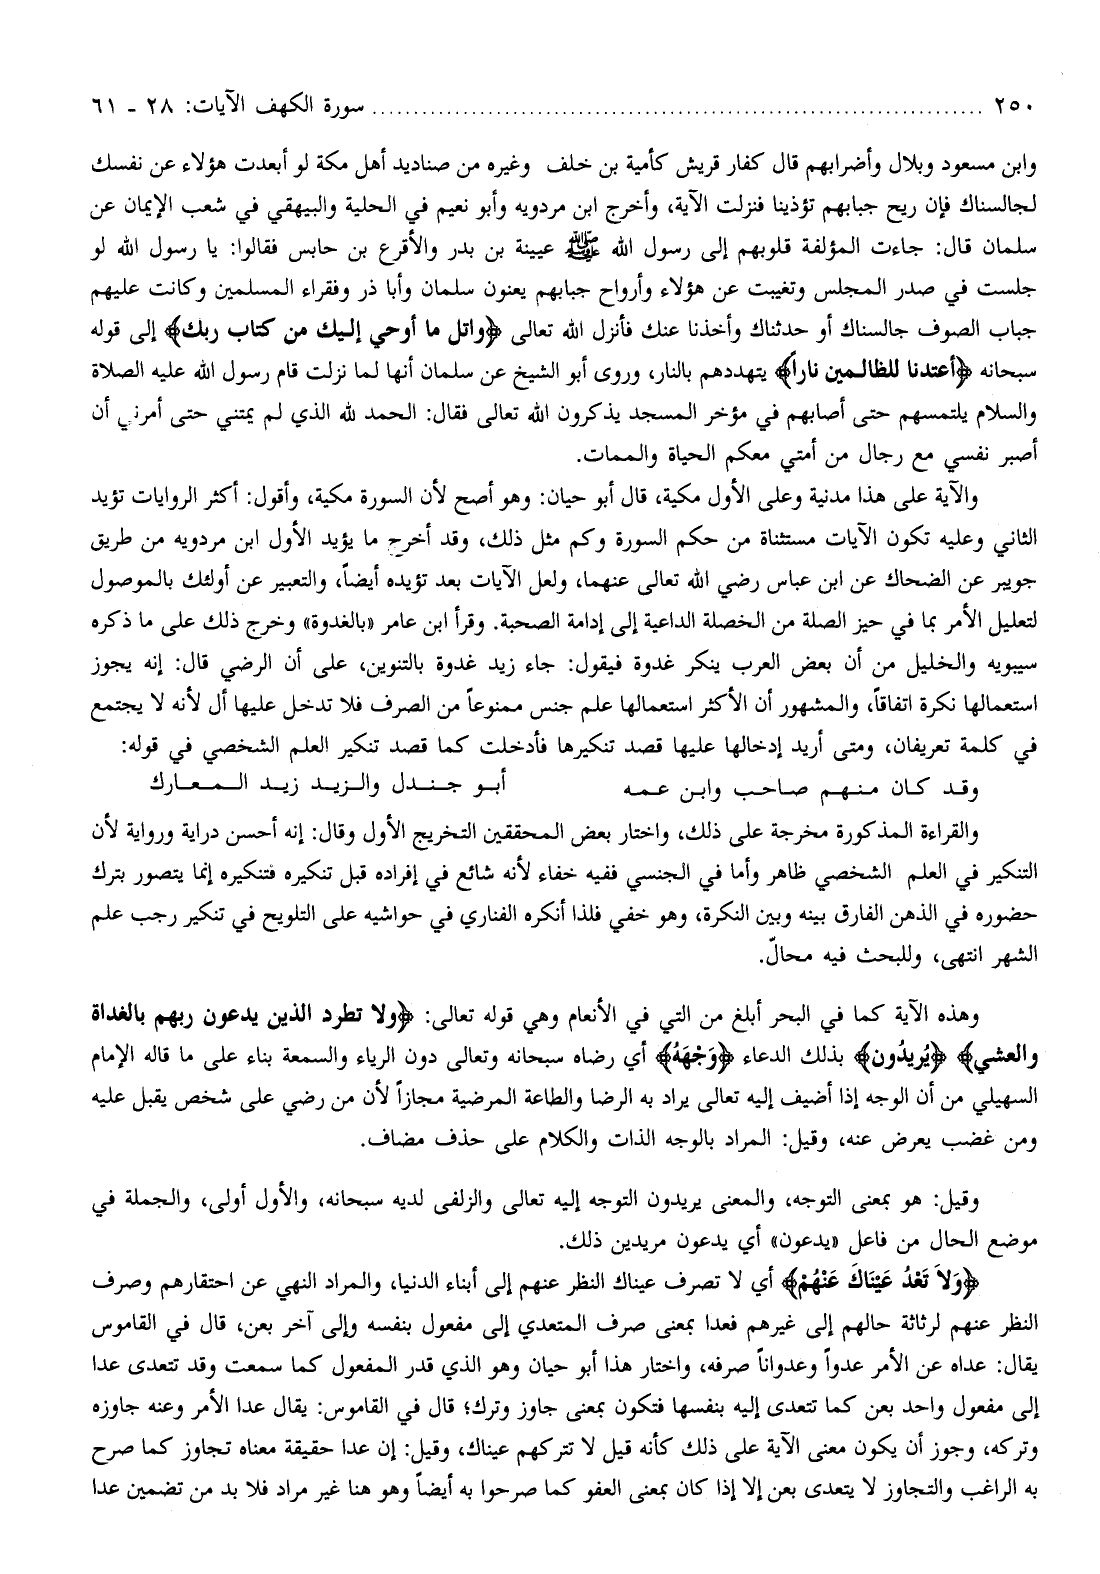 ٢٥٠ ........................................................................ سورة الكهف الآيات: ٢٨ - ٦١
وابن مسعود وبلال وأضرابهم قال كفار قريش كأمية بن خلف وغيره من صناديد أهل مكة لو أبعدت هؤلاء عن نفسك
لجالسناك فإن ريح جبابهم تؤذينا فنزلت الآية، وأخرج ابن مردويه وأبو نعيم في الحلية والبيهقي في شعب الإيمان عن
سلمان قال: جاءت المؤلفة قلوبهم إلى رسول الله ﷺ عيينة بن بدر والأقرع بن حابس فقالوا: يا رسول الله لو
جلست في صدر المجلس وتغيبت عن هؤلاء وأرواح جبابهم يعنون سلمان وأبا ذر وفقراء المسلمين وكانت عليهم
جباب الصوف جالسناك أو حدثناك وأخذنا عنك فأنزل الله تعالى ﴿واتل ما أوحي إليك من كتاب ربك﴾ إلى قوله
سبحانه ﴿أعتدنا للظالمين ناراً﴾ يتهددهم بالنار، وروى أبو الشيخ عن سلمان أنها لما نزلت قام رسول الله عليه الصلاة
والسلام يلتمسهم حتى أصابهم في مؤخر المسجد يذكرون الله تعالى فقال: الحمد لله الذي لم يمتني حتى أمرني أن
أصبر نفسي مع رجال من أمتي معكم الحياة والممات.
والآية على هذا مدنية وعلى الأول مكية، قال أبو حيان: وهو أصح لأن السورة مكية، وأقول: أكثر الروايات تؤيد
الثاني وعليه تكون الآيات مستثناة من حكم السورة وكم مثل ذلك، وقد أخرج ما يؤيد الأول ابن مردويه من طريق
جويبر عن الضحاك عن ابن عباس رضي الله تعالى عنهما، ولعل الآيات بعد تؤيده أيضاً، والتعبير عن أولئك بالموصول
لتعليل الأمر بما في حيز الصلة من الخصلة الداعية إلى إدامة الصحبة. وقرأ ابن عامر «بالغدوة» وخرج ذلك على ما ذكره
سيبويه والخليل من أن بعض العرب ينكر غدوة فيقول: جاء زيد غدوة بالتنوين، على أن الرضي قال: إنه يجوز
استعمالها نكرة اتفاقاً، والمشهور أن الأكثر استعمالها علم جنس ممنوعاً من الصرف فلا تدخل عليها أل لأنه لا يجتمع
في كلمة تعريفان، ومتى أريد إدخالها عليها قصد تنكيرها فأدخلت كما قصد تنكير العلم الشخصي في قوله:
وقد كان منهم صاحب وابن عمه أبو جندل والزيد زيد المعارك
والقراءة المذكورة مخرجة على ذلك، واختار بعض المحققين التخريج الأول وقال: إنه أحسن دراية ورواية لأن
التنكير في العلم الشخصي ظاهر وأما في الجنسي ففيه خفاء لأنه شائع في إفراده قبل تنكيره فتنكيره إنما يتصور بترك
حضوره في الذهن الفارق بينه وبين النكرة، وهو خفي فلذا أنكره الفناري في حواشيه على التلويح في تنكير رجب علم
الشهر انتهى، وللبحث فيه محالّ.
وهذه الآية كما في البحر أبلغ من التي في الأنعام وهي قوله تعالى: ﴿ولا تطرد الذين يدعون ربهم بالغداة
والعشي﴾ ﴿يُريدُون﴾ بذلك الدعاء ﴿وَجْهَهُ﴾ أي رضاه سبحانه وتعالى دون الرياء والسمعة بناء على ما قاله الإمام
السهيلي من أن الوجه إذا أضيف إليه تعالى يراد به الرضا والطاعة المرضية مجازاً لأن من رضي على شخص يقبل عليه
ومن غضب يعرض عنه، وقيل: المراد بالوجه الذات والكلام على حذف مضاف.
وقيل: هو بمعنى التوجه، والمعنى يريدون التوجه إليه تعالى والزلفى لديه سبحانه، والأول أولى، والجملة في
موضع الحال من فاعل «يدعون» أي يدعون مريدين ذلك.
﴿وَلاَ تَعْدُ عَيْنَاكَ عَنْهُمْ﴾ أي لا تصرف عيناك النظر عنهم إلى أبناء الدنيا، والمراد النهي عن احتقارهم وصرف
النظر عنهم لرثاثة حالهم إلى غيرهم فعدا بمعنى صرف المتعدي إلى مفعول بنفسه وإلى آخر بعن، قال في القاموس
يقال: عداه عن الأمر عدواً وعدواناً صرفه، واختار هذا أبو حيان وهو الذي قدر المفعول كما سمعت وقد تتعدى عدا
إلى مفعول واحد بعن كما تتعدى إليه بنفسها فتكون بمعنى جاوز وترك؛ قال في القاموس: يقال عدا الأمر وعنه جاوزه
وتركه، وجوز أن يكون معنى الآية على ذلك كأنه قيل لا تتركهم عيناك، وقيل: إن عدا حقيقة معناه تجاوز كما صرح
به الراغب والتجاوز لا يتعدى بعن إلا إذا كان بمعنى العفو كما صرحوا به أيضاً وهو هنا غير مراد فلا بد من تضمين عدا